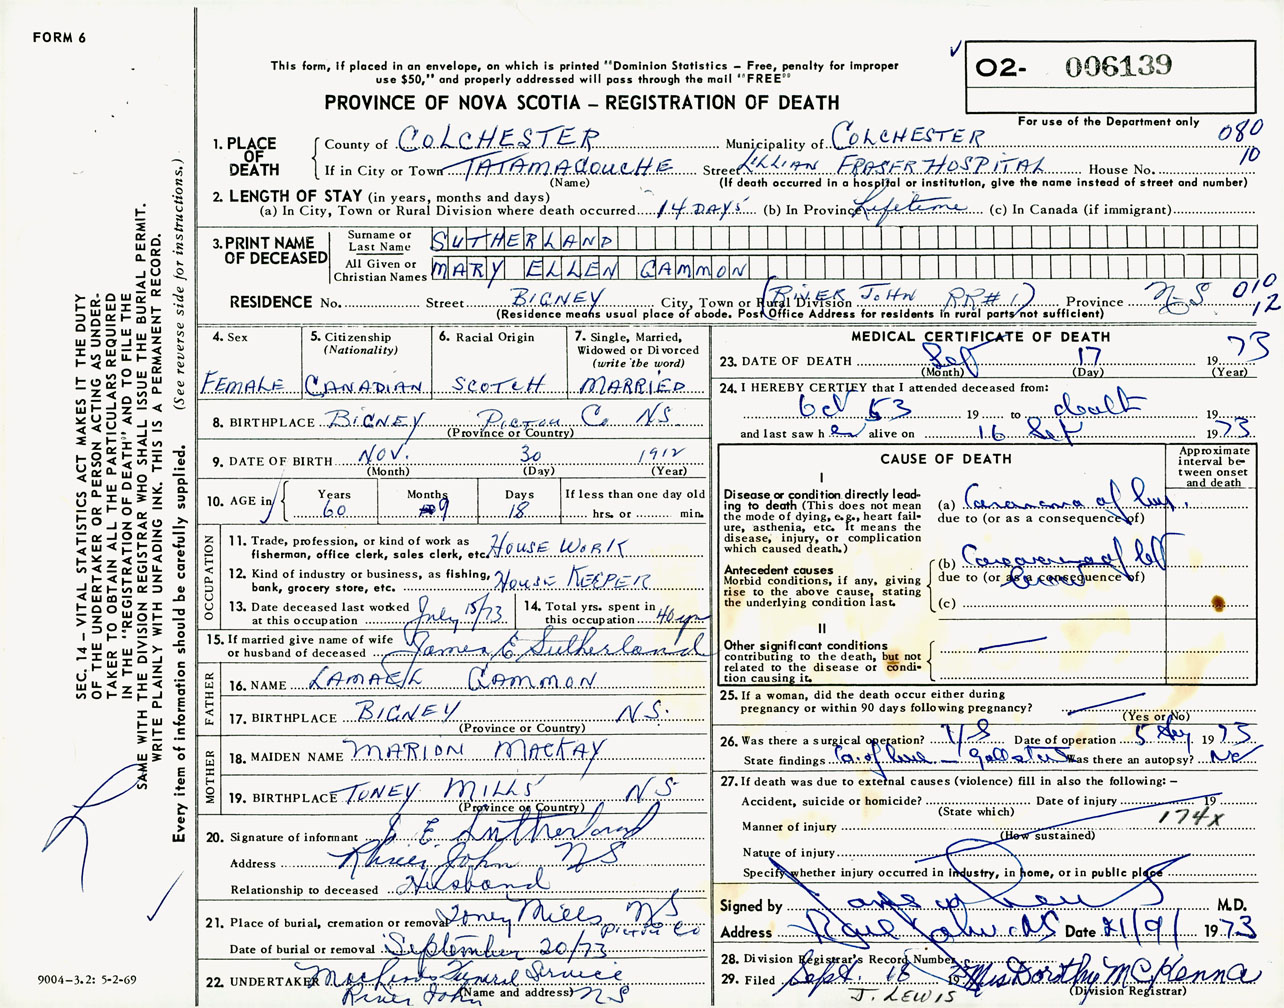 FORM 6
This form, if placed in an envelope, on which is printed "Dominion Statistics – Free, penalty for improper
use $50," and properly addressed will pass through the mail "FREE"
02- 006139
PROVINCE OF NOVA SCOTIA – REGISTRATION OF DEATH
For use of the Department only
080
10
1. PLACE OF DEATH
County of COLCHESTER Municipality of COLCHESTER
If in City or Town TATAMAGOUCHE Street LILLIAN FRASER HOSPITAL House No.
(Name) (If death occurred in a hospital or institution, give the name instead of street and number)
2. LENGTH OF STAY (in years, months and days)
(a) In City, Town or Rural Division where death occurred 14 DAYS (b) In Province Lifetime (c) In Canada (if immigrant)
3. PRINT NAME OF DECEASED
Surname or Last Name SUTHERLAND
All Given or Christian Names MARY ELLEN GAMMON
RESIDENCE No. Street BIGNEY City, Town or Rural Division (RIVER JOHN RR#1) Province N-S 010
12
(Residence means usual place of abode. Post Office Address for residents in rural parts not sufficient)
4. Sex
FEMALE
5. Citizenship
(Nationality)
CANADIAN
6. Racial Origin
SCOTCH
7. Single, Married,
Widowed or Divorced
(write the word)
MARRIED
8. BIRTHPLACE BIGNEY PICTOU Co NS.
(Province or Country)
9. DATE OF BIRTH NOV. 30 1912
(Month) (Day) (Year)
10. AGE in
Years Months Days If less than one day old
60 9 18 hrs. or min.
OCCUPATION
11. Trade, profession, or kind of work as
fisherman, office clerk, sales clerk, etc. HOUSE WORK
12. Kind of industry or business, as fishing,
bank, grocery store, etc. HOUSE KEEPER
13. Date deceased last worked
at this occupation July 15/73
14. Total yrs. spent in
this occupation 40 yrs
15. If married give name of wife
or husband of deceased James E Sutherland
FATHER
16. NAME GAMMON
17. BIRTHPLACE BIGNEY N.S.
(Province or Country)
MOTHER
18. MAIDEN NAME MARION MACKAY
19. BIRTHPLACE TONEY MILLS N.S.
(Province or Country)
20. Signature of informant J E Sutherland
Address River John NS
Relationship to deceased Husband
21. Place of burial, cremation or removal Toney Mills NS
Pictou Co
Date of burial or removal September 20/73
22. UNDERTAKER Funeral Service
River John NS
(Name and address)
MEDICAL CERTIFICATE OF DEATH
23. DATE OF DEATH Sept 17 19 73
(Month) (Day) (Year)
24. I HEREBY CERTIFY that I attended deceased from:
Oct 53 19 to death 19
and last saw her alive on 16 Sept 19 73
CAUSE OF DEATH
Approximate
interval be-
tween onset
and death
I
Disease or condition directly lead-
ing to death (This does not
mean the mode of dying, e.g., heart fail-
ure, asthenia, etc. It means the
disease, injury, or complication
which caused death.)
(a) Carcinoma of
due to (or as a consequence of)
Antecedent causes
Morbid conditions, if any, giving
rise to the above cause, stating
the underlying condition last.
(b) Carcinoma of left
due to (or as a consequence of)
(c)
II
Other significant conditions
contributing to the death, but not
related to the disease or condi-
tion causing it.
25. If a woman, did the death occur either during
pregnancy or within 90 days following pregnancy?
(Yes or No)
26. Was there a surgical operation? Date of operation 5 19 73
State findings Was there an autopsy? No
27. If death was due to external causes (violence) fill in also the following: –
Accident, suicide or homicide? Date of injury 19
(State which)
174x
Manner of injury
(How sustained)
Nature of injury
Specify whether injury occurred in industry, in home, or in public place
Signed by M.D.
Address River John NS Date 21/9/ 19 73
28. Division Registrar's Record Number
29. Filed Sept. 18 Miss Dorothy McKenna
(Division Registrar)
J. LEWIS
SEC. 14 – VITAL STATISTICS ACT MAKES IT THE DUTY
OF THE UNDERTAKER OR PERSON ACTING AS UNDER-
TAKER TO OBTAIN ALL THE PARTICULARS REQUIRED
IN THE "REGISTRATION OF DEATH" AND TO FILE THE
SAME WITH THE DIVISION REGISTRAR WHO SHALL ISSUE THE BURIAL PERMIT.
WRITE PLAINLY WITH UNFADING INK. THIS IS A PERMANENT RECORD.
Every item of information should be carefully supplied. (See reverse side for instructions.)
9004-3.2: 5-2-69